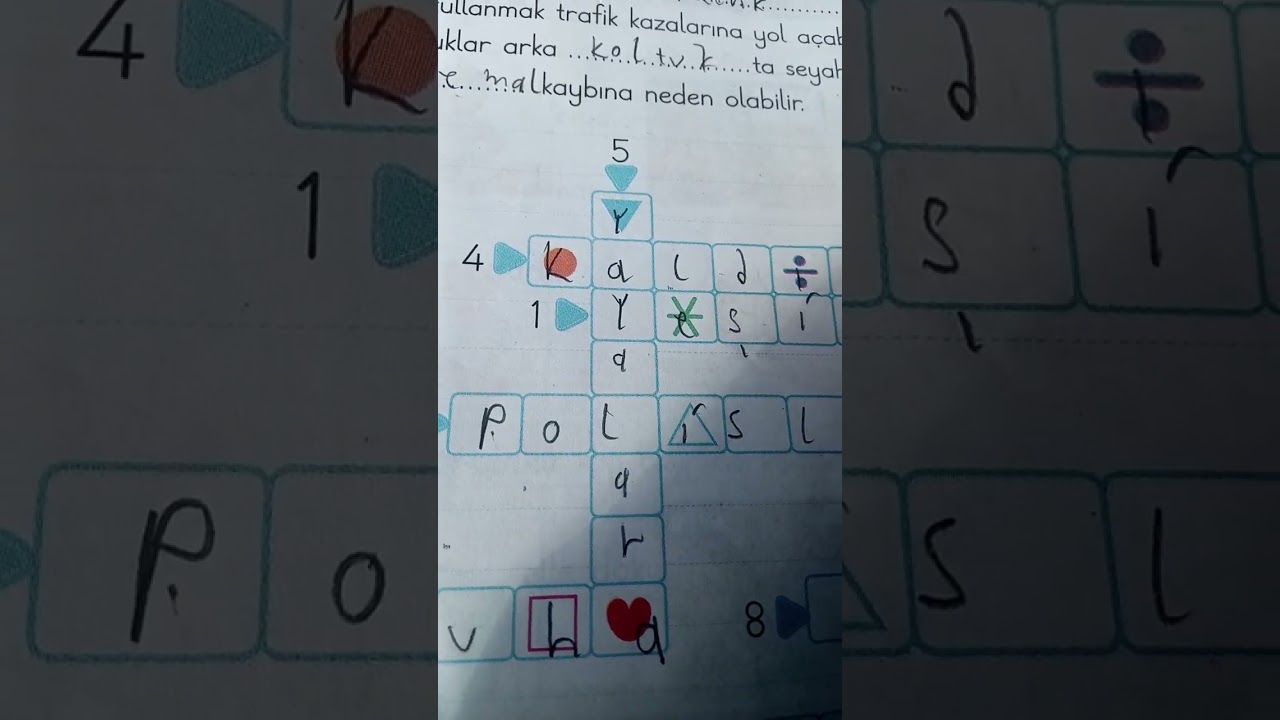 ullanmak trafik kazalarına yol açab
uklar arka ...koltuk.....ta seyah
malkaybına neden olabilir.
5
Y
4 K a l d
1 Y e s i
a
P o l i s l
a
r
v h a 8